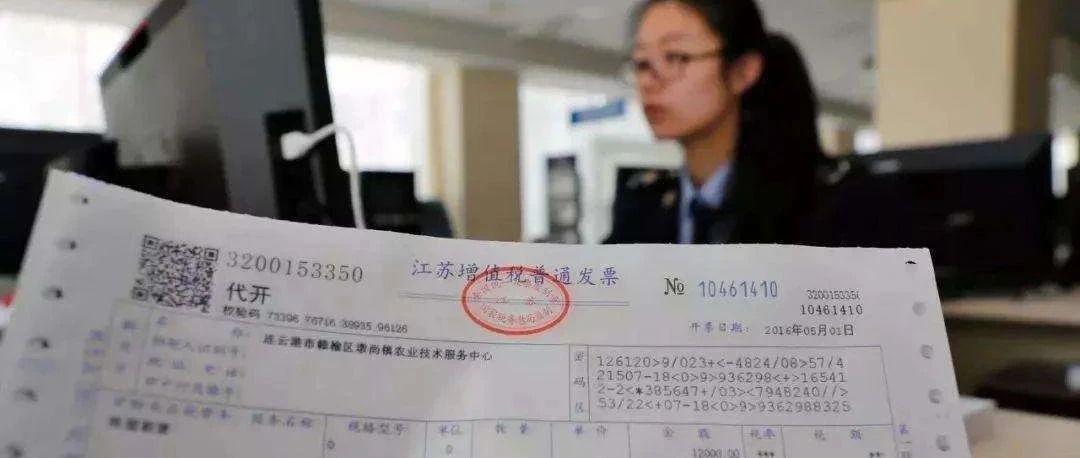 3200153350
江苏增值税普通发票
№ 10461410
320015335
10461410
代开
校验码 73396 76716 38935 96126
开票日期: 2016年05月01日
名 称: 连云港市赣榆区墩尚镇农业技术服务中心
密码区
126120>9/023+<-4824/08>57/4
21507-18<0>9>936298<+>16541
2-2<*385647+/03><7948240//>
53/22<+07-18<0>9>9362988325
规格型号
单位
数 量
单 价
金 额
税率
税 额
0
0
12000.00
***